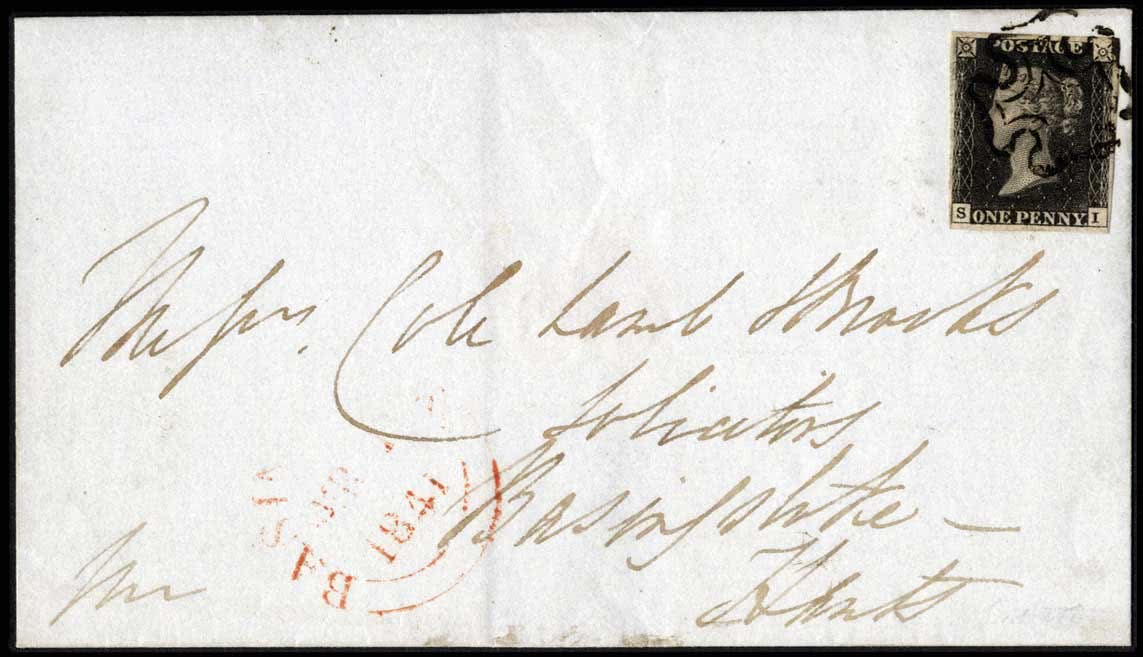 POSTAGE
S ONE PENNY. I
Messrs. Cole Lamb & Brooks
Solicitors
Basingstoke
Hants
BASIN
1841